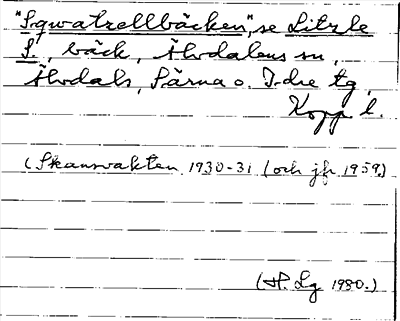 "Sqvatrellbäcken", se Litzle
S.", bäck, Älvdalens sn,
Älvdals, Särna o. Idre tg,
Kopp l.
(Skansvakten 1930-31 (och jfr 1959.)
(H. Lg 1980.)